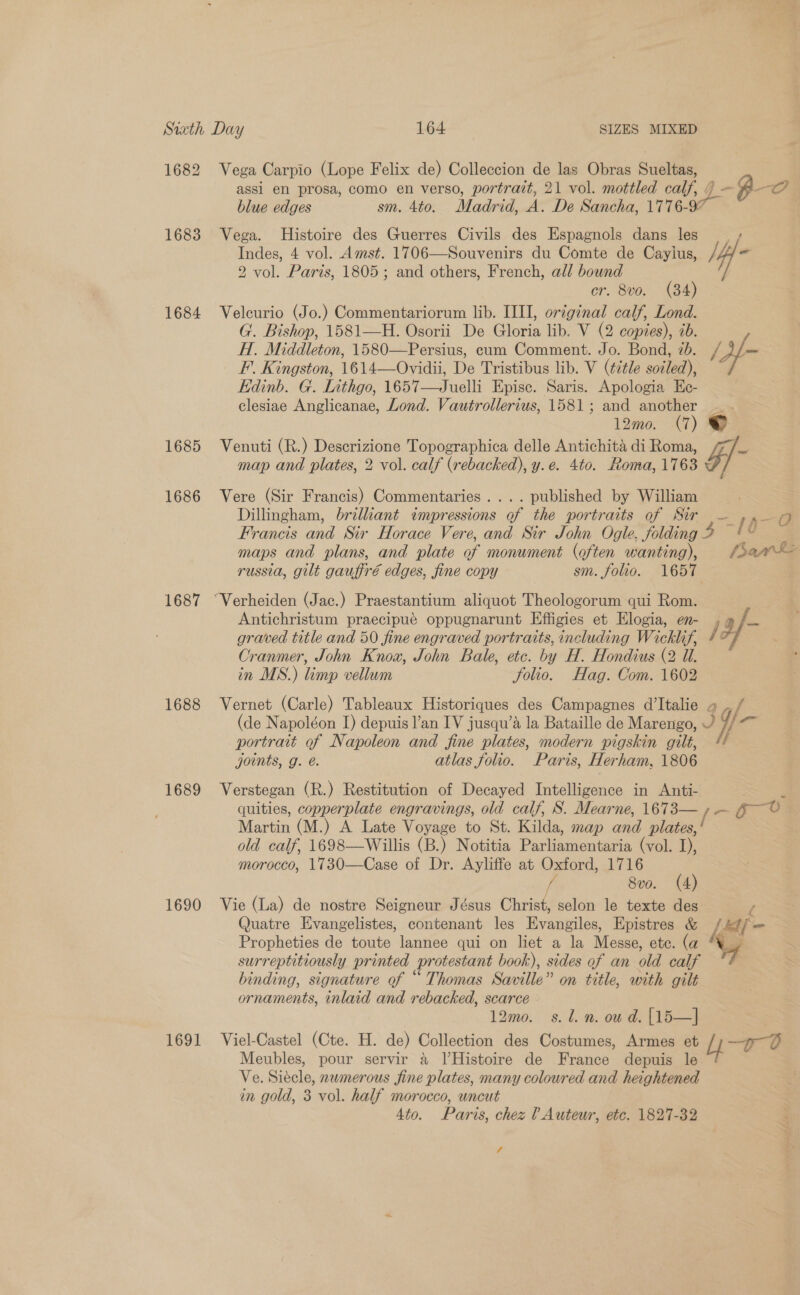 Sixth Day 164 SIZES MIXED
1682 Vega Carpio (Lope Felix de) Colleccion de las Obras Sueltas,
assi en prosa, como en verso, portrait, 21 vol. mottled calf,
blue edges sm. 4to. Madrid, A. De Sancha, 1776-9
1683 Vega. Histoire des Guerres Civils des Espagnols dans les
Indes, 4 vol. Amst. 1706—Souvenirs du Comte de Caylus,
2 vol. Paris, 1805; and others, French, all bound
cr. 8vo. (34)
1684 Velcurio (Jo.) Commentariorum lib. IIII, original calf, Lond.
G. Bishop, 1581—H. Osorii De Gloria lib. V (2 copies), ib.
H. Middleton, 1580—Persius, cum Comment. Jo. Bond, ib.
F. Kingston, 1614—Ovidii, De Tristibus lib. V (title soiled),
Edinb. G. Lithgo, 1657—Juelli Episc. Saris. Apologia Ec-
clesiae Anglicanae, Lond. Vautrollerius, 1581; and another
12mo. (7)
1685 Venuti (R.) Descrizione Topographica delle Antichità di Roma,
map and plates, 2 vol. calf (rebacked), y. e. 4to. Roma, 1763
1686 Vere (Sir Francis) Commentaries .... published by William
Dillingham, brilliant impressions of the portraits of Sir
Francis and Sir Horace Vere, and Sir John Ogle, folding
maps and plans, and plate of monument (often wanting),
russia, gilt gauffré edges, fine copy sm. folio. 1657
1687 Verheiden (Jac.) Praestantium aliquot Theologorum qui Rom.
Antichristum praecipuè oppugnarunt Effigies et Elogia, en-
graved title and 50 fine engraved portraits, including Wicklif,
Cranmer, John Knox, John Bale, etc. by H. Hondius (2 ll.
in MS.) limp vellum folio. Hag. Com. 1602
1688 Vernet (Carle) Tableaux Historiques des Campagnes d'Italie
(de Napoléon I) depuis l'an IV jusqu'à la Bataille de Marengo,
portrait of Napoleon and fine plates, modern pigskin gilt,
joints, g. e. atlas folio. Paris, Herham, 1806
1689 Verstegan (R.) Restitution of Decayed Intelligence in Anti-
quities, copperplate engravings, old calf, S. Mearne, 1673—
Martin (M.) A Late Voyage to St. Kilda, map and plates,
old calf, 1698—Willis (B.) Notitia Parliamentaria (vol. I),
morocco, 1730—Case of Dr. Ayliffe at Oxford, 1716
8vo. (4)
1690 Vie (La) de nostre Seigneur Jésus Christ, selon le texte des
Quatre Evangelistes, contenant les Evangiles, Epistres &
Propheties de toute lannee qui on liet a la Messe, etc. (a
surreptitiously printed protestant book), sides of an old calf
binding, signature of "Thomas Saville" on title, with gilt
ornaments, inlaid and rebacked, scarce
12mo. s. l. n. ou d. [15—]
1691 Viel-Castel (Cte. H. de) Collection des Costumes, Armes et
Meubles, pour servir à l'Histoire de France depuis le
Ve. Siècle, numerous fine plates, many coloured and heightened
in gold, 3 vol. half morocco, uncut
4to. Paris, chez l'Auteur, etc. 1827-32